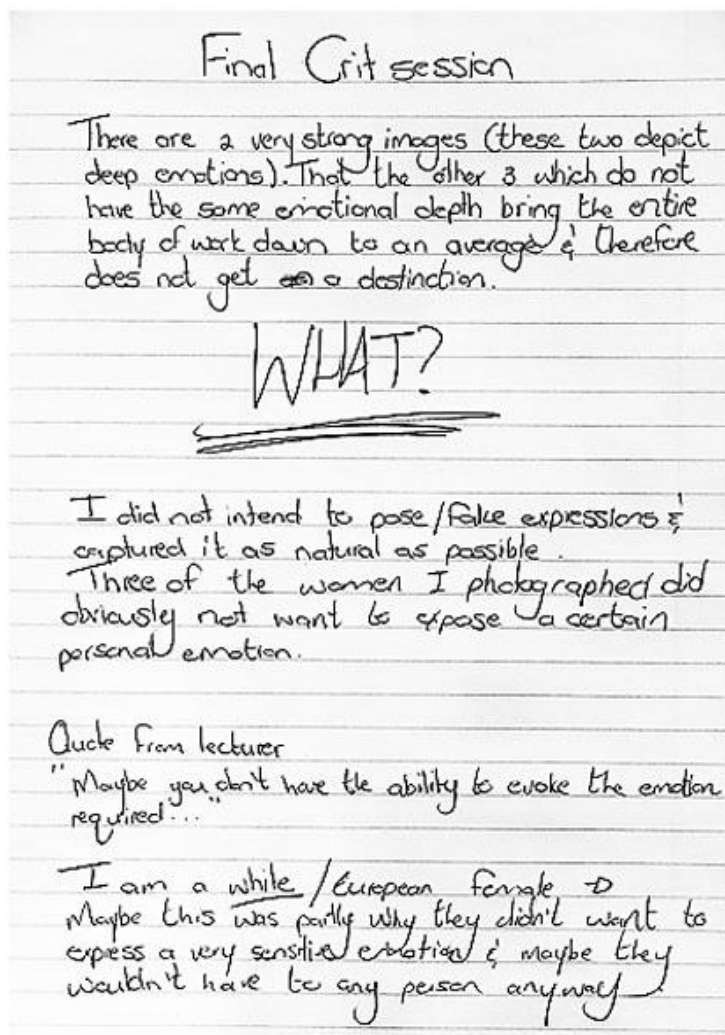 Final Crit session
There are 2 very strong images (these two depict
deep emotions). That the other 3 which do not
have the same emotional depth bring the entire
body of work down to an average & therefore
does not get a destinction.
WHAT?
I did not intend to pose/fake expressions &
captured it as natural as possible.
Three of the women I photographed did
obviously not want to expose a certain
personal emotion.
Quote from lecturer
"Maybe you don't have the ability to evoke the emotion
required..."
I am a white/European female →
Maybe this was partly why they didn't want to
express a very sensitive emotion & maybe they
wouldn't have to any person anyway.